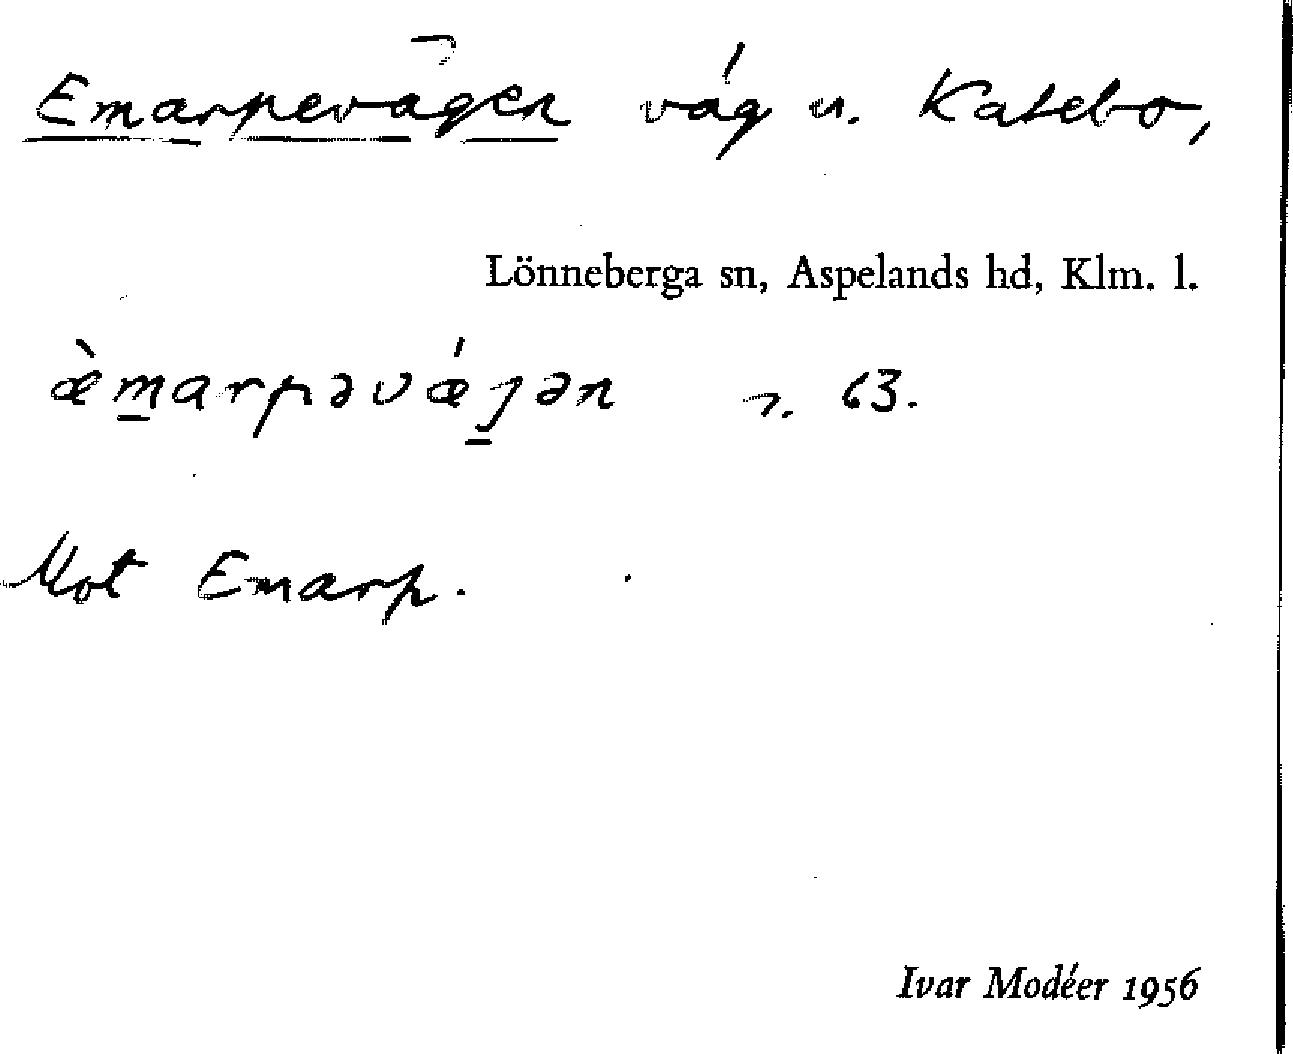 Emarpevägen väg u. Katebo,
Lönneberga sn, Aspelands hd, Klm. l.
æ̀m̲arpəvǽȷ̲ən 63.
Mot Emarp.
Ivar Modéer 1956